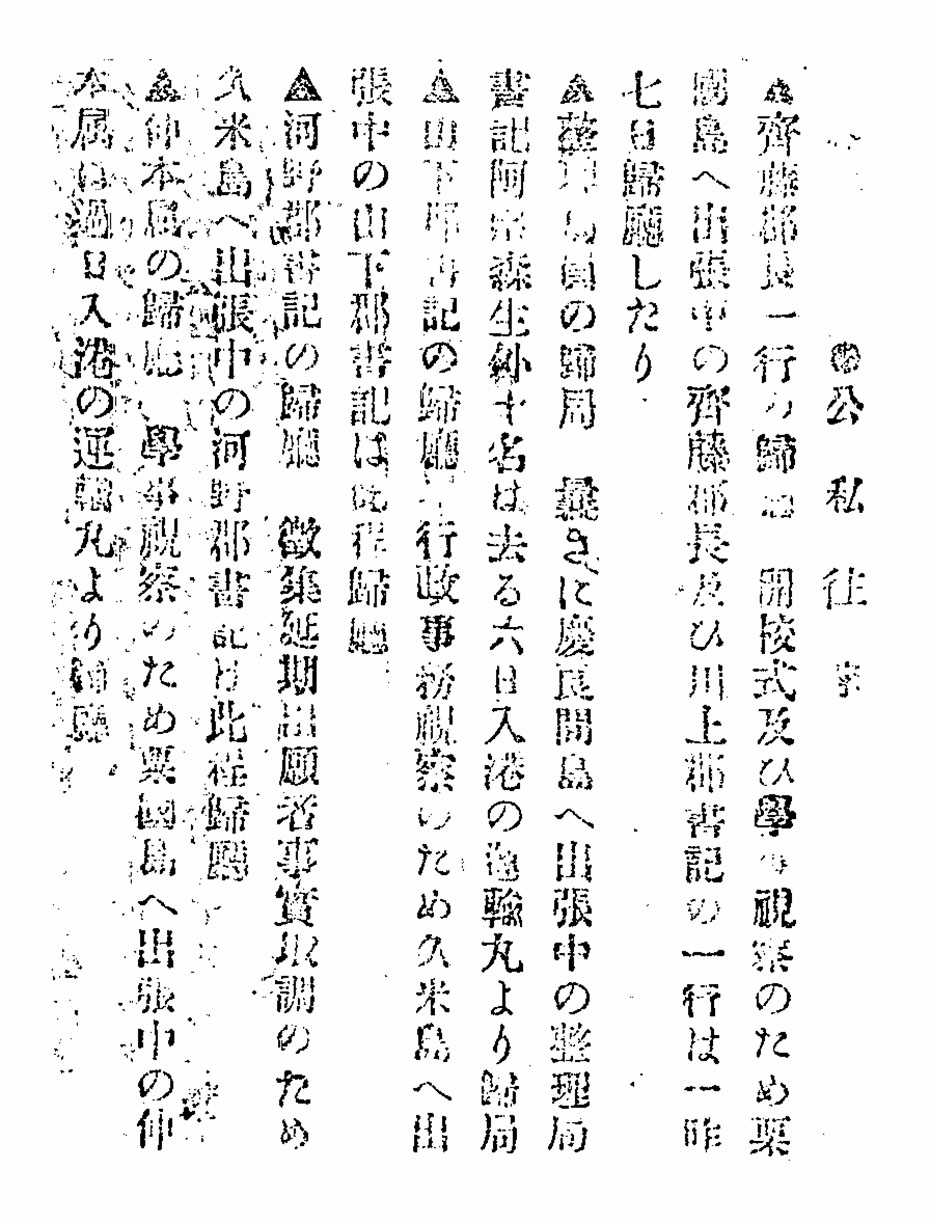 ●公私往来
▲齊藤郡長一行の歸廳 開校式及ひ學事視察のため粟
國島へ出張中の齊藤郡長及ひ川上郡書記の一行は一昨
七日歸廳したり
▲整理局員の歸局 曩きに慶良間島へ出張中の整理局
書記阿 森生外十名は去る六日入港の運輸丸より歸局
▲山下郡書記の歸廳 行政事務視察のため久米島へ出
張中の山下郡書記は此程歸廳
▲河野郡書記の歸廳 徴集延期出願者事實取調のため
久米島へ出張中の河野郡書記は此程歸廳
▲仲本属の歸廳 學事視察のため粟國島へ出張中の仲
本属は過日入港の運輸丸より歸廳